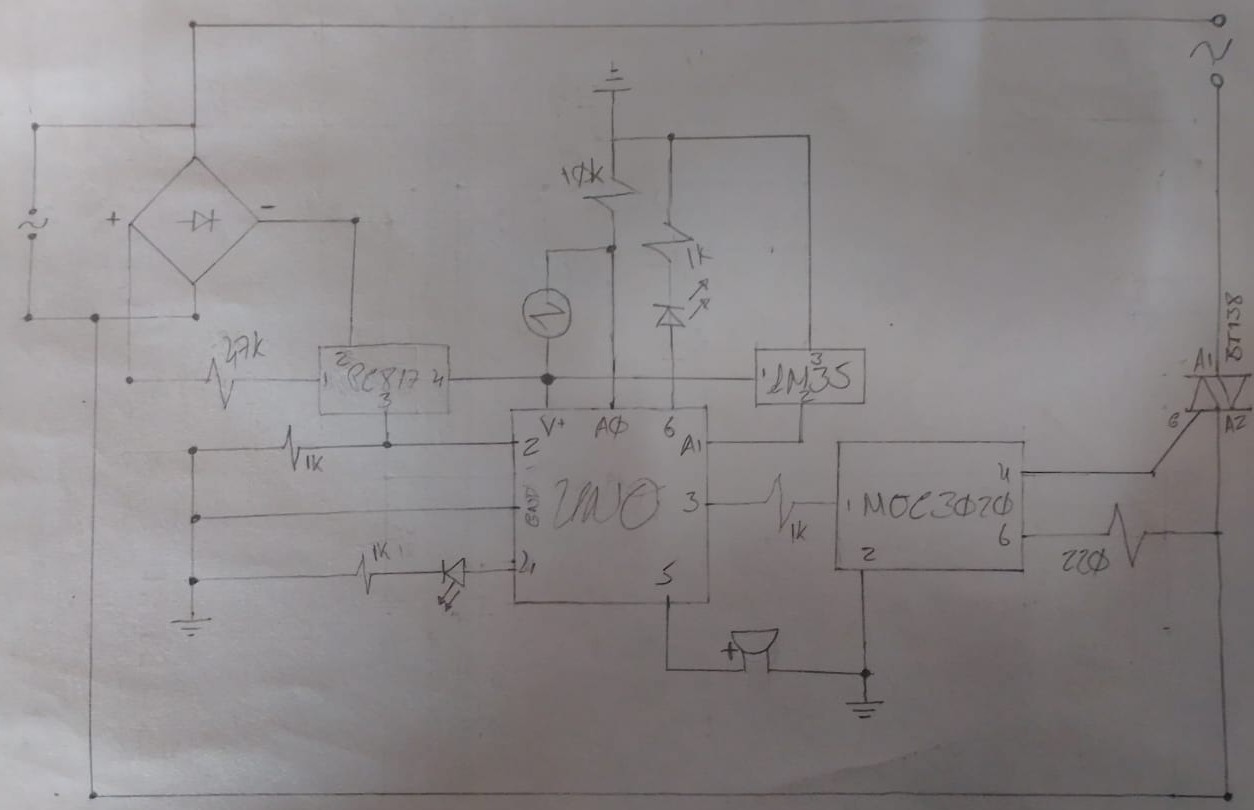 10k
1k
+
-
27K
2
1
PC817
4
3
1
3
LM35
2
V+
A0
6
A1
2
UNO
GND
3
4
5
1K
1K
1K
1
MOC3020
4
6
2
220
+
A1
BT138
G
A2